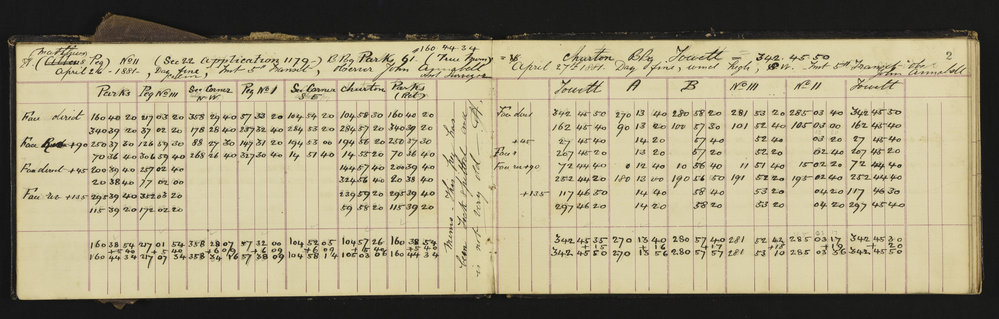 (Matthews 160 44 34
Peg No 11 (Sec 22 Application 1179) B Peg Park 91. (True Bearing)
April 26 - 1881. Day Fine, Inst 5" Transit, Observer John Annabell
Asst Surveyor
Parks Peg No 111 Sec Corner N.W. Peg No 1 Sec Corner S.E. Churton Parks (Rpt)
Face direct 160 40 20 217 03 20 358 29 40 57 33 20 104 54 20 104 58 30 160 40 20
340 39 20 37 02 20 178 28 40 237 32 40 284 53 20 284 57 20 340 39 20
Face +90 250 37 30 126 59 30 88 27 30 147 31 20 194 53 00 194 56 20 250 37 30
70 36 40 306 59 40 268 26 40 327 30 40 14 51 40 14 55 20 70 36 40
Face direct +45 200 39 40 257 02 40 144 57 40 200 39 40
20 38 40 77 02 00 324 56 40 20 38 40
Face rev +135 295 39 40 352 03 20 239 59 20 295 39 40
115 39 20 172 02 20 59 58 20 115 39 20
160 38 54 217 01 54 358 28 07 57 32 00 104 52 05 104 57 26 160 38 54
+5 40 +5 40 +6 09 +6 09 +6 09 +5 40 +5 40
160 44 34 217 07 34 358 34 16 57 38 09 104 58 14 105 03 06 160 44 34
Memo This Peg has
been Jack spitted and
is not very old
2
Churton B Peg Jowett = 342 45 50
April 27th 1881. Day fine, wind high, S.W. Inst 5" Transit Obs
John Annabell
Jowett A B No 111 No 11 Jowett
Face direct 342 45 50 270 13 40 280 58 20 281 53 20 285 03 40 342 45 50
162 45 40 90 13 20 100 57 30 101 52 40 105 03 00 162 45 40
+45 27 45 40 14 20 57 40 52 40 03 20 27 45 40
207 45 20 13 20 57 20 52 20 02 40 207 45 20
Face rev +90 72 44 40 0 12 40 10 56 40 11 51 40 15 02 20 72 44 40
252 44 20 180 13 00 190 56 50 191 52 20 195 02 40 252 44 20
+135 117 46 50 14 20 58 40 53 20 04 20 117 46 30
297 46 20 14 20 58 20 53 20 04 20 297 45 40
342 45 35 270 13 40 280 57 40 281 52 42 285 03 17 342 45 30
+15 +16 +17 +18 +19 +20
342 45 50 270 13 56 280 57 57 281 53 10 285 03 36 342 45 50